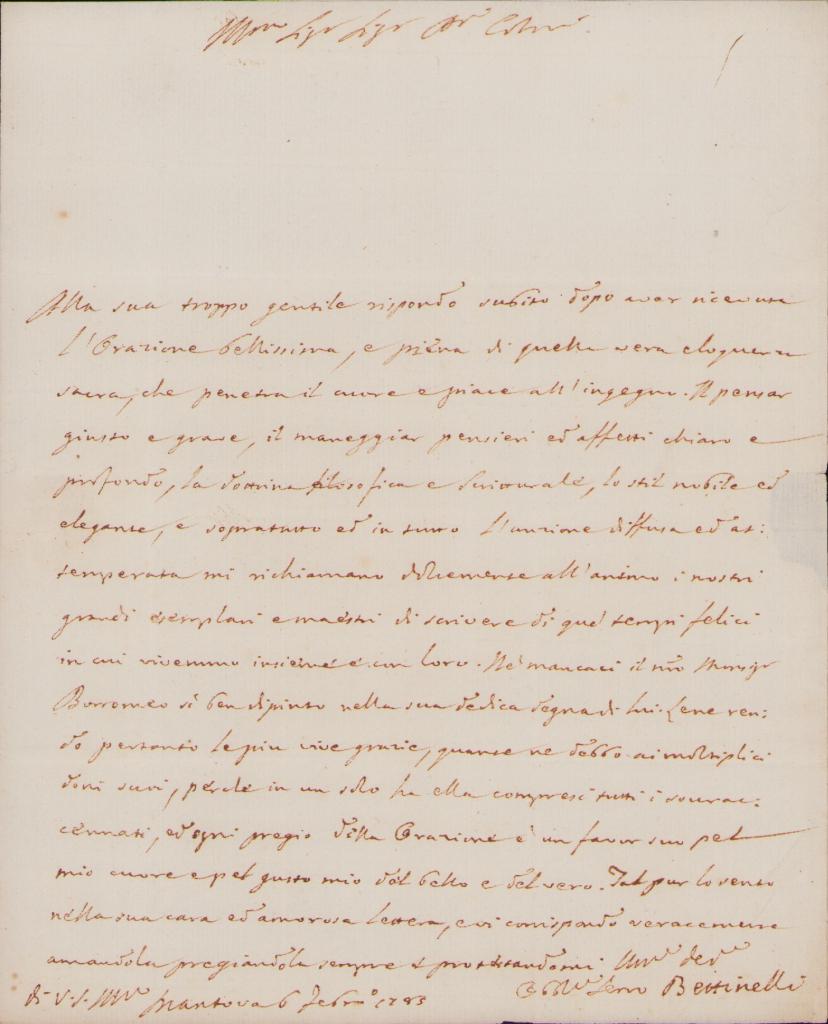 Illmo Sigr Sigr
Alla sua troppo gentile rispondo subito dopo aver ricevuta
l'Orazione bellissima, e piena di quella vera eloquenza
sacra, che penetra il cuore e piace all'ingegno. Il pensar
giusto e grave, il maneggiar pensieri ed affetti chiaro e
profondo, la dottrina filosofica e scritturale, lo stil nobile ed
elegante, e sopratutto ed in tutto l'unzione diffusa ed at:
temperata mi richiamano dolcemente all'animo i nostri
grandi esemplari e maestri di scrivere di que' tempi felici
in cui vivemmo insieme e con loro. Nè mancaci il nro Monsigr
Borromeo sì ben dipinto nella sua dedica degna di lui. Le ne ren:
do pertanto le piu vive grazie, quante ne debbo ai moltiplici
doni suoi, perche in un solo ha ella compresi tutti i sovrac:
cennati, ed ogni pregio della Orazione è un favor suo pel
mio cuore e pel gusto mio del bello e del vero. Tal pur lo sento
nella sua cara ed amorosa lettera, e vi corrispondo veracemente
amandola pregiandola sempre e protestandomi
di V. S. Illma Mantova 6 Febro 1783 Servo Bettinelli